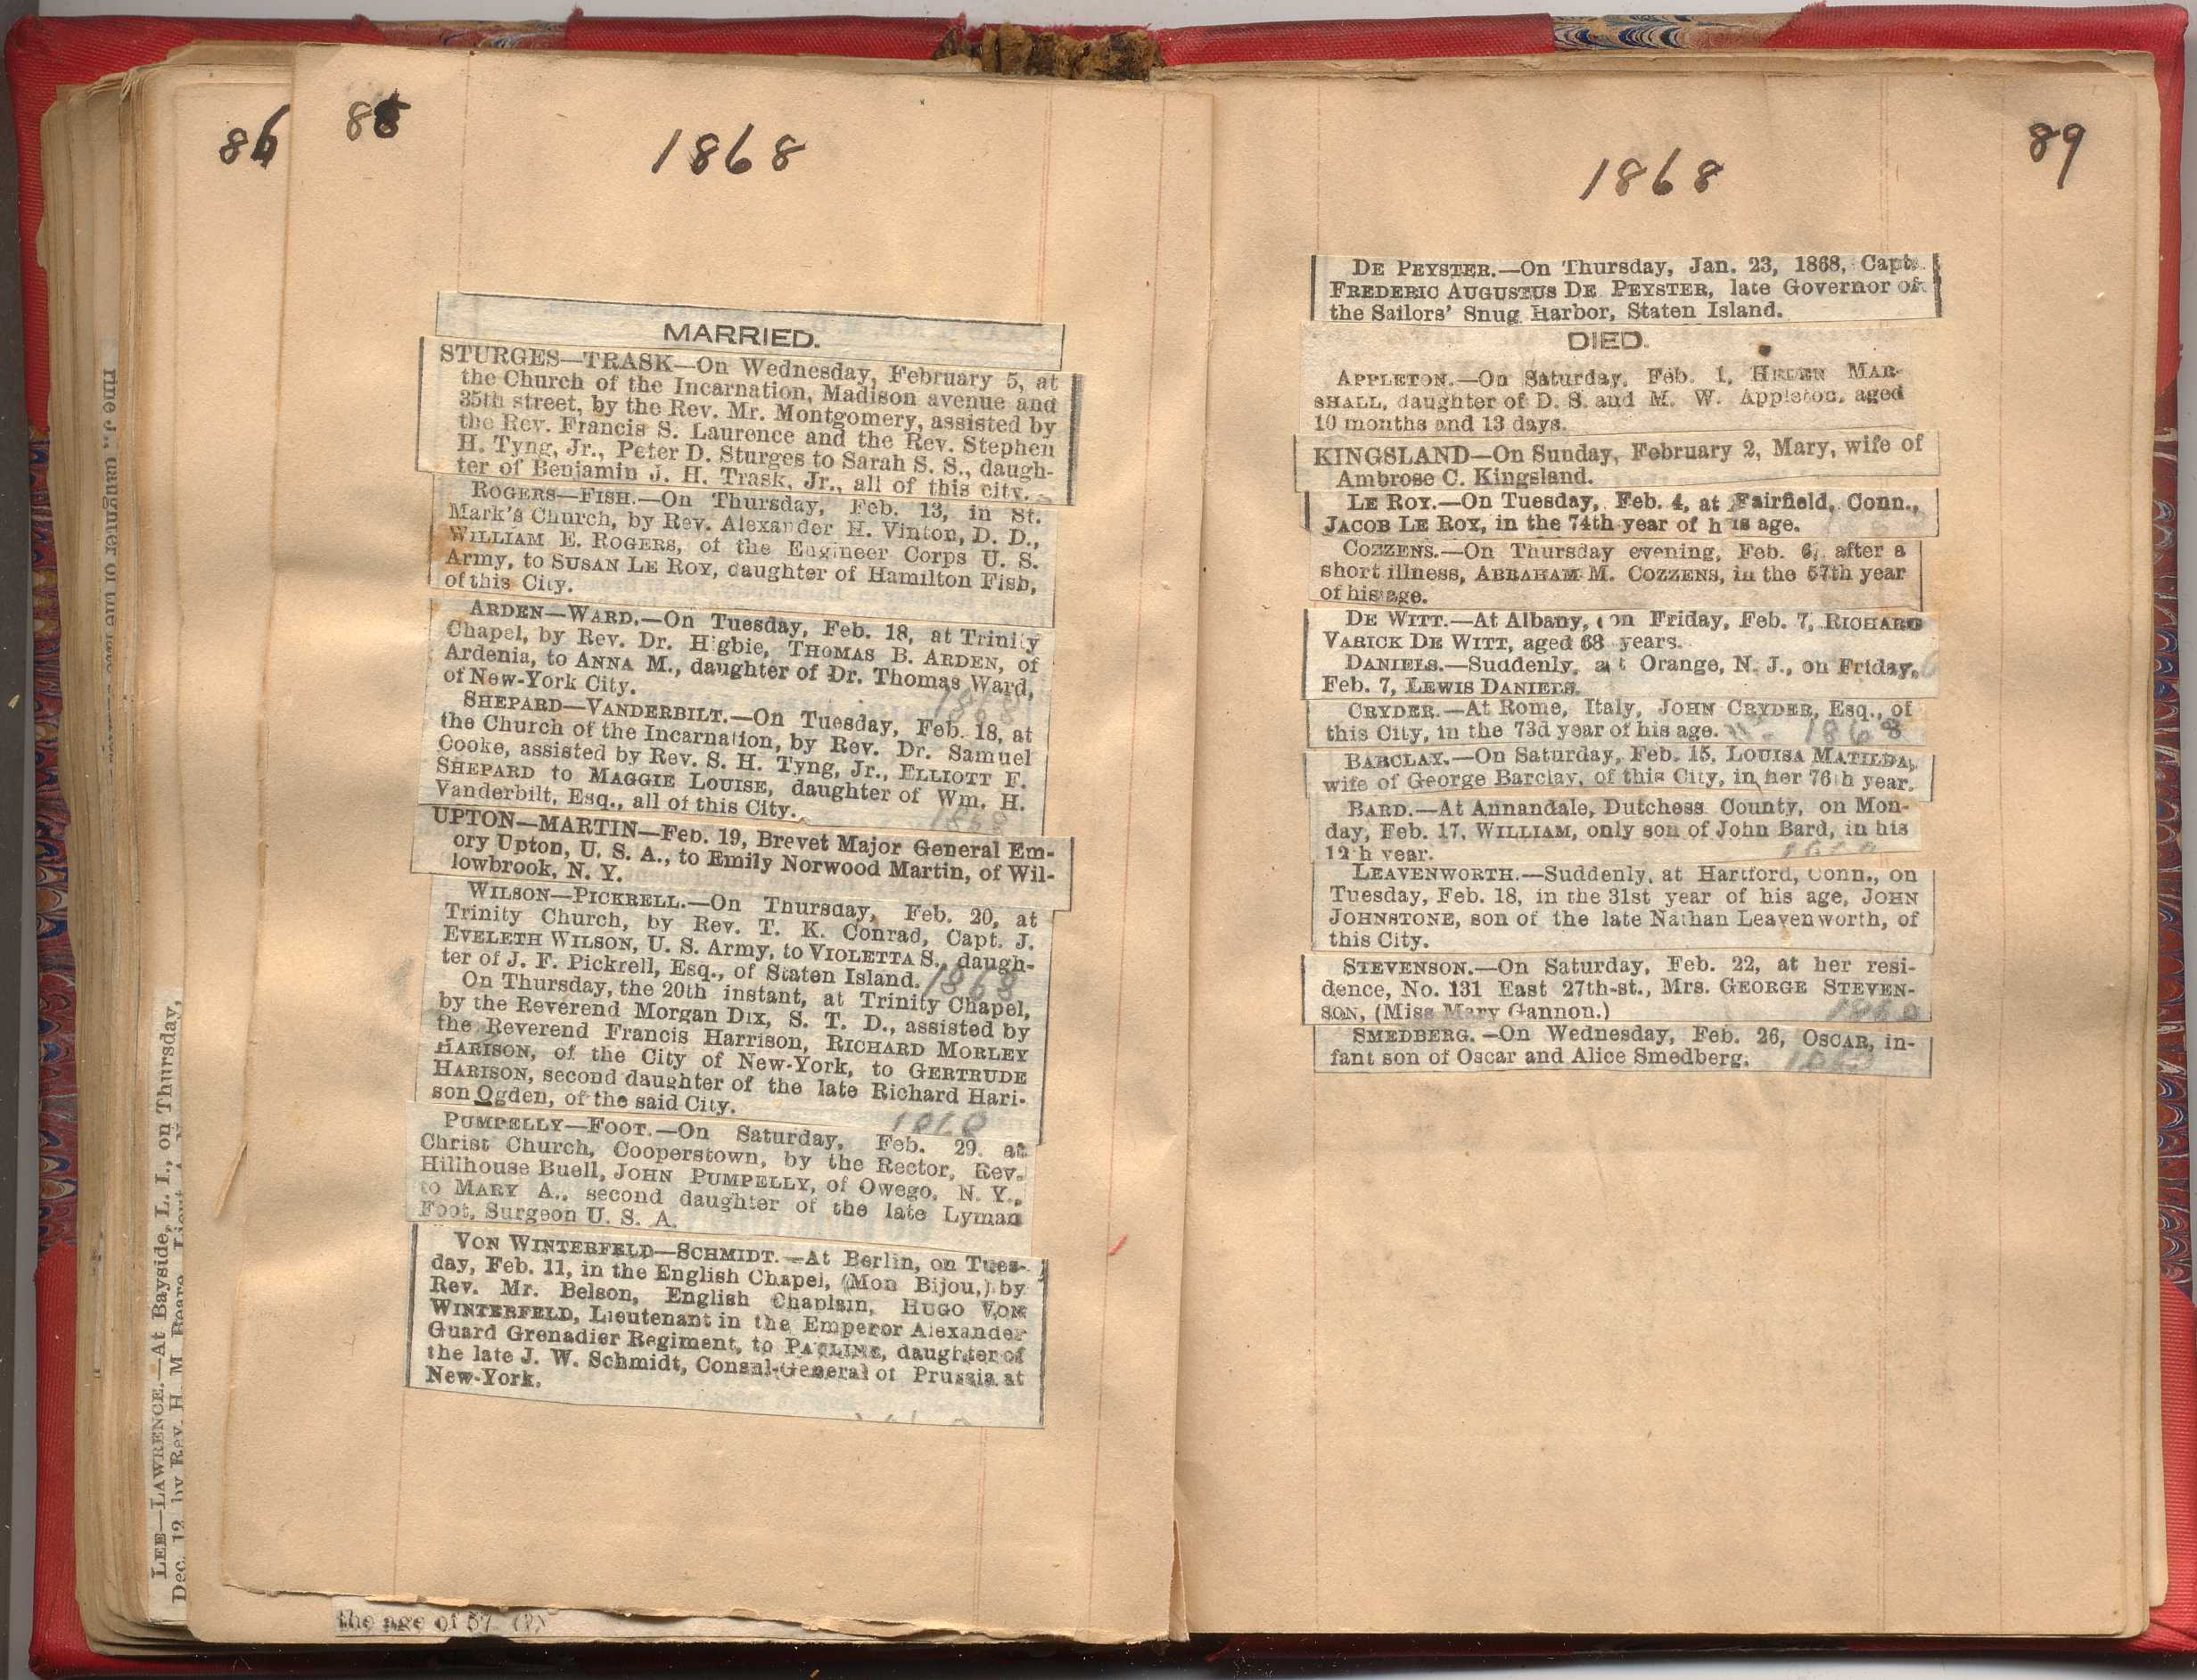 86
88
1868
MARRIED.
STURGES—TRASK—On Wednesday, February 5, at
the Church of the Incarnation, Madison avenue and
35th street, by the Rev. Mr. Montgomery, assisted by
the Rev. Francis S. Laurence and the Rev. Stephen
H. Tyng, Jr., Peter D. Sturges to Sarah S. S., daugh-
ter of Benjamin J. H. Trask, Jr., all of this city.
ROGERS—FISH.—On Thursday, Feb. 13, in St.
Mark's Church, by Rev. Alexander H. Vinton, D. D.,
WILLIAM E. ROGERS, of the Engineer Corps U. S.
Army, to SUSAN LE ROY, daughter of Hamilton Fish,
of this City.
ARDEN—WARD.—On Tuesday, Feb. 18, at Trinity
Chapel, by Rev. Dr. Higbie, THOMAS B. ARDEN, of
Ardenia, to ANNA M., daughter of Dr. Thomas Ward,
of New-York City.
1868
SHEPARD—VANDERBILT.—On Tuesday, Feb. 18, at
the Church of the Incarnation, by Rev. Dr. Samuel
Cooke, assisted by Rev. S. H. Tyng, Jr., ELLIOTT F.
SHEPARD to MAGGIE LOUISE, daughter of Wm. H.
Vanderbilt, Esq., all of this City.
1868
UPTON—MARTIN—Feb. 19, Brevet Major General Em-
ory Upton, U. S. A., to Emily Norwood Martin, of Wil-
lowbrook, N. Y.
WILSON—PICKRELL.—On Thursday, Feb. 20, at
Trinity Church, by Rev. T. K. Conrad, Capt. J.
EVELETH WILSON, U. S. Army, to VIOLETTA S., daugh-
ter of J. F. Pickrell, Esq., of Staten Island. 1868
On Thursday, the 20th instant, at Trinity Chapel,
by the Reverend Morgan Dix, S. T. D., assisted by
the Reverend Francis Harrison, RICHARD MORLEY
HARISON, of the City of New-York, to GERTRUDE
HARISON, second daughter of the late Richard Hari-
son Ogden, of the said City.
1868
PUMPELLY—FOOT.—On Saturday, Feb. 29, at
Christ Church, Cooperstown, by the Rector, Rev.
Hillhouse Buell, JOHN PUMPELLY, of Owego, N. Y.,
to MARY A., second daughter of the late Lyman
Foot, Surgeon U. S. A.
VON WINTERFELD—SCHMIDT.—At Berlin, on Tues-
day, Feb. 11, in the English Chapel, (Mon Bijou,) by
Rev. Mr. Belson, English Chaplain, HUGO VON
WINTERFELD, Lieutenant in the Emperor Alexander
Guard Grenadier Regiment, to PAULINE, daughter of
the late J. W. Schmidt, Consul-General of Prussia at
New-York.
the age of 57 (?)
LEE—LAWRENCE.—At Bayside, L. I., on Thursday,
Dec. 12, by Rev. H. M.
89
1868
DE PEYSTER.—On Thursday, Jan. 23, 1868, Capt.
FREDERIC AUGUSTUS DE PEYSTER, late Governor of
the Sailors' Snug Harbor, Staten Island.
DIED.
APPLETON.—On Saturday, Feb. 1, HELEN MAR-
SHALL, daughter of D. S. and M. W. Appleton, aged
10 months and 13 days.
KINGSLAND—On Sunday, February 2, Mary, wife of
Ambrose C. Kingsland.
LE ROY.—On Tuesday, Feb. 4, at Fairfield, Conn.,
JACOB LE ROY, in the 74th year of his age.
COZZENS.—On Thursday evening, Feb. 6, after a
short illness, ABRAHAM M. COZZENS, in the 57th year
of his age.
DE WITT.—At Albany, on Friday, Feb. 7, RICHARD
VARICK DE WITT, aged 68 years.
DANIELS.—Suddenly, at Orange, N. J., on Friday,
Feb. 7, LEWIS DANIELS.
CRYDER.—At Rome, Italy, JOHN CRYDER, Esq., of
this City, in the 73d year of his age. 1868
BARCLAY.—On Saturday, Feb. 15, LOUISA MATILDA,
wife of George Barclay, of this City, in her 76th year.
BARD.—At Annandale, Dutchess County, on Mon-
day, Feb. 17, WILLIAM, only son of John Bard, in his
12th year.
LEAVENWORTH.—Suddenly, at Hartford, Conn., on
Tuesday, Feb. 18, in the 31st year of his age, JOHN
JOHNSTONE, son of the late Nathan Leavenworth, of
this City.
STEVENSON.—On Saturday, Feb. 22, at her resi-
dence, No. 131 East 27th-st., Mrs. GEORGE STEVEN-
SON, (Miss Mary Gannon.) 1868
SMEDBERG.—On Wednesday, Feb. 26, OSCAR, in-
fant son of Oscar and Alice Smedberg. 1868